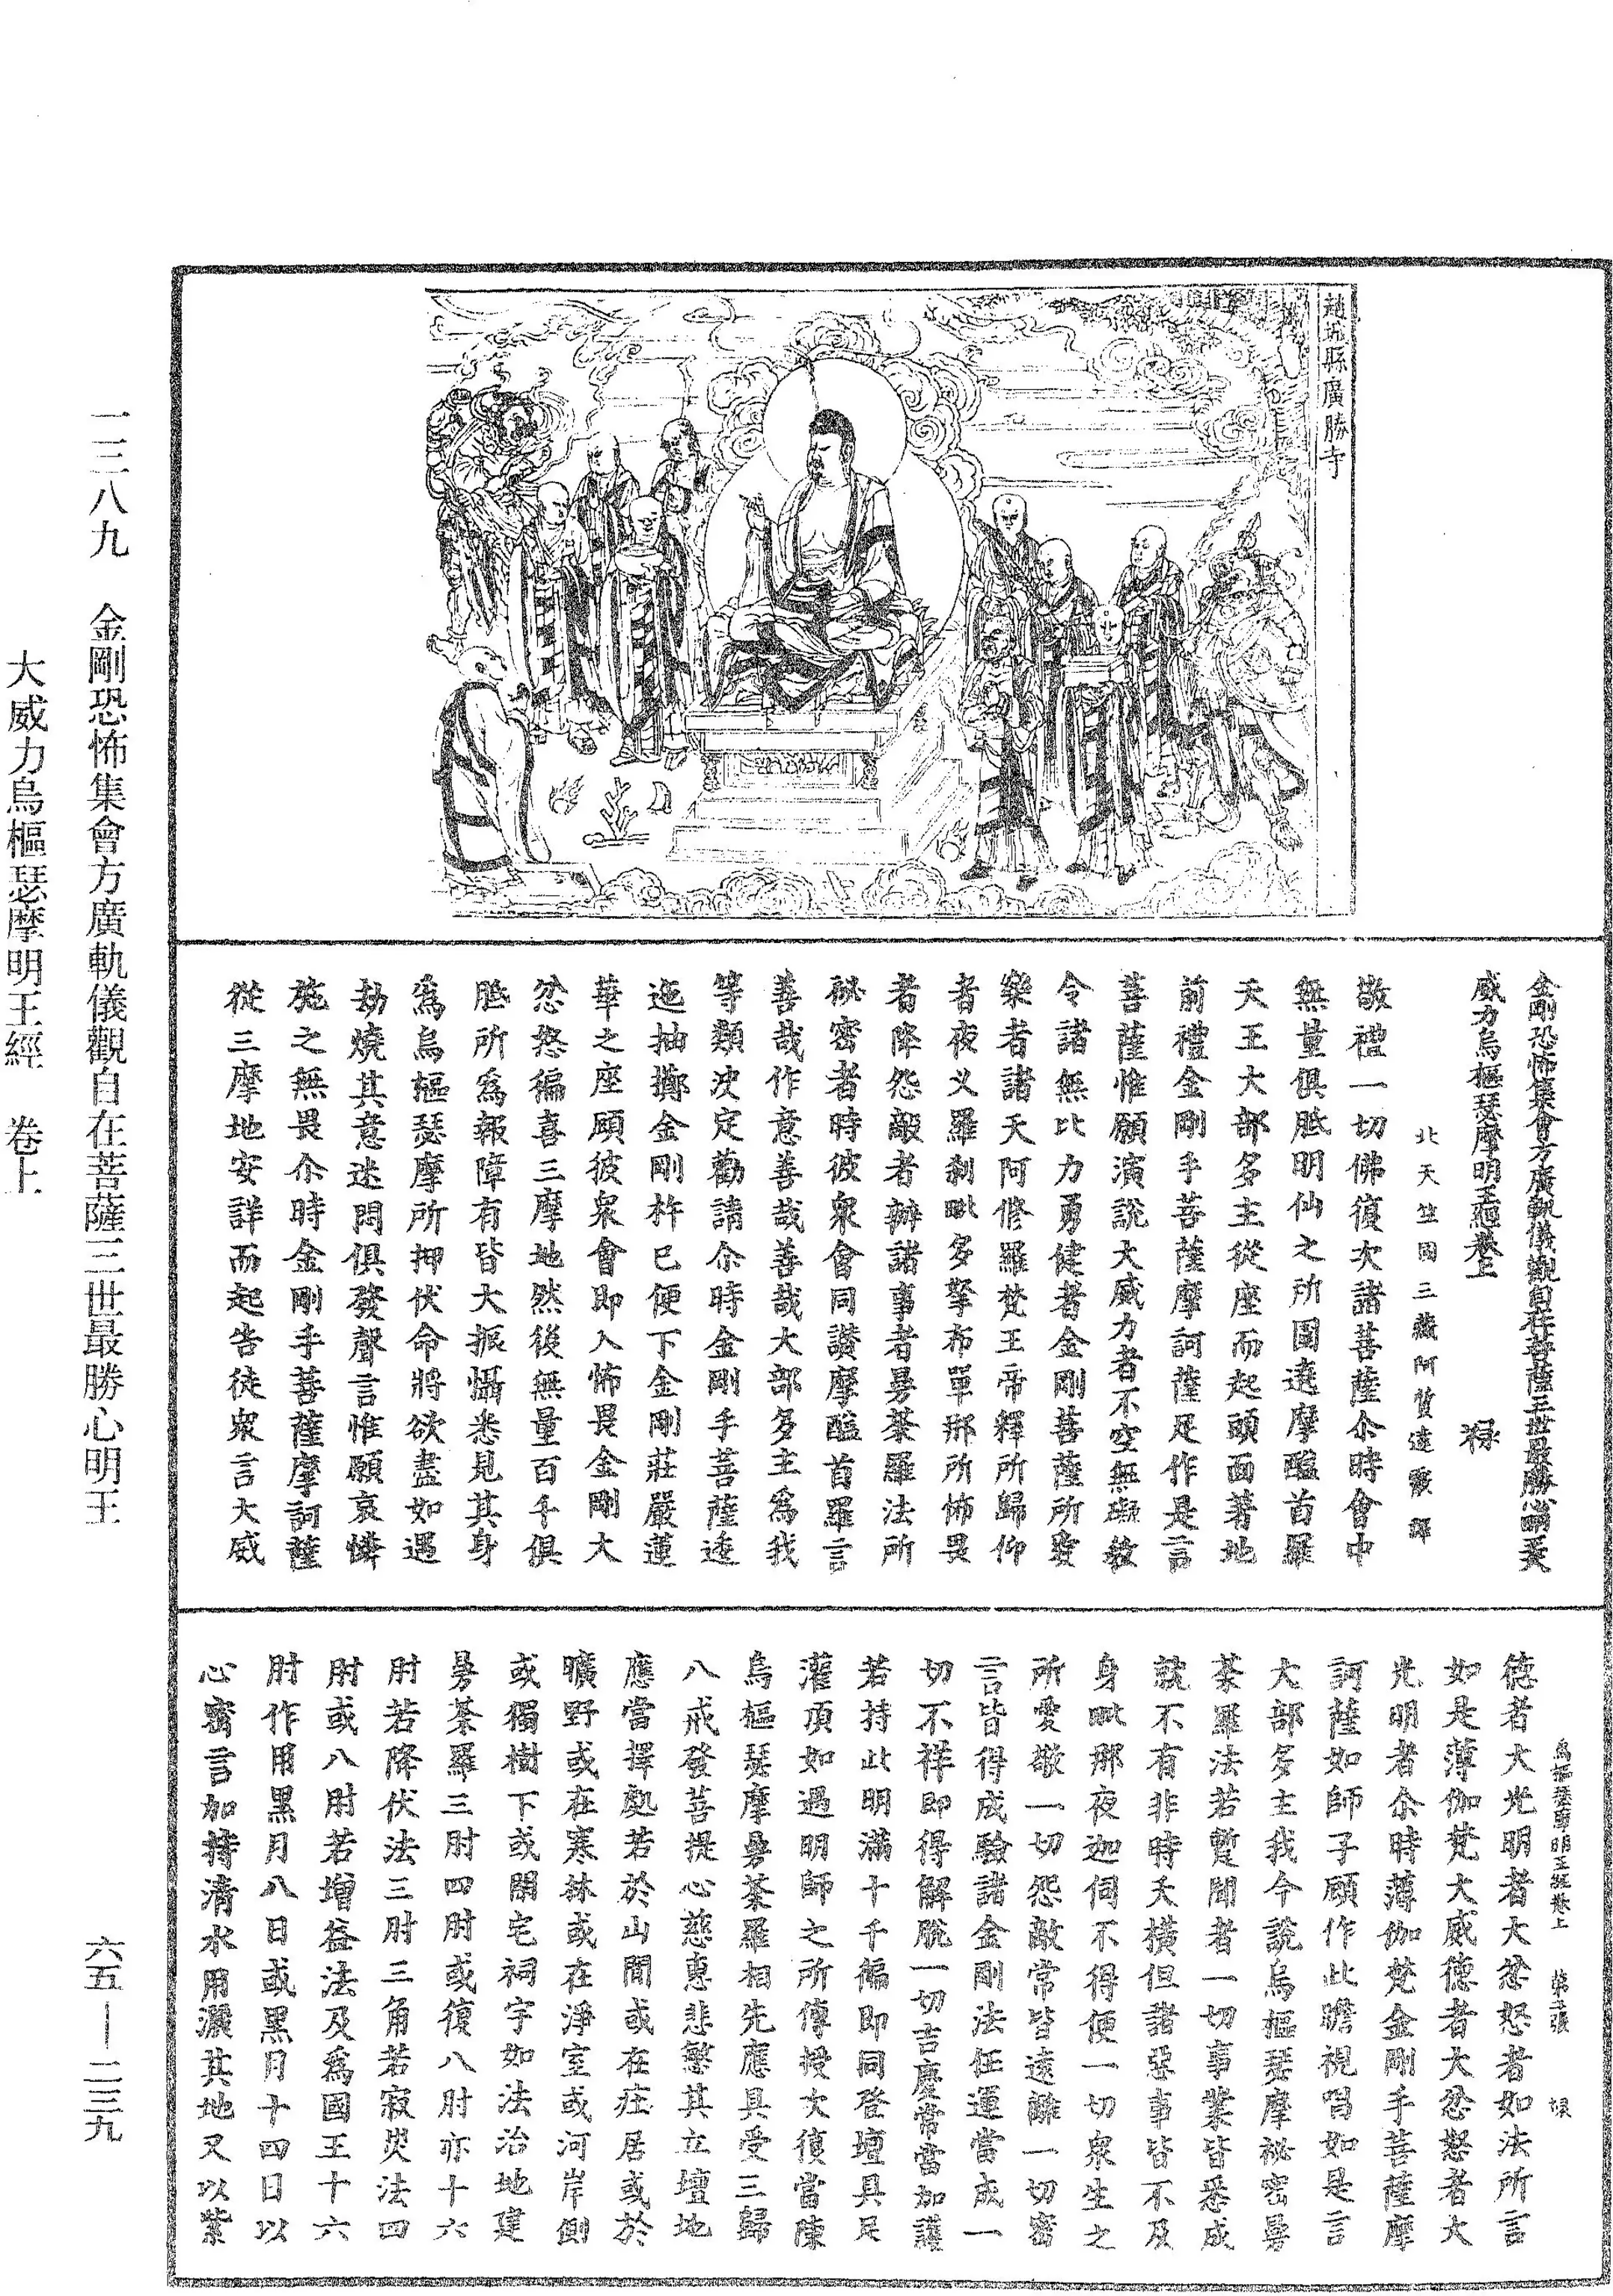 趙城縣廣勝寺
金剛恐怖集會方廣軌儀觀自在菩薩三世最勝心明王大
威力烏樞瑟摩明王經卷上 祿
北天竺國三藏阿質達霰譯
敬禮一切佛復次諸菩薩尒時會中
無量俱胝明仙之所圍遶摩醯首羅
天王大部多主從座而起頭面著地
前禮金剛手菩薩摩訶薩足作是言
菩薩惟願演說大威力者不空無礙教
令諸無比力勇健者金剛菩薩所愛
樂者諸天阿修羅梵王帝釋所歸仰
者夜叉羅剎毗多拏布單那所怖畏
者降怨敵者辦諸事者曼荼羅法所
祕密者時彼衆會同讚摩醯首羅言
善哉作意善哉善哉大部多主爲我
等類決定勸請尒時金剛手菩薩逶
迤抽擲金剛杵已便下金剛莊嚴蓮
華之座顧彼衆會即入怖畏金剛大
忿怒徧喜三摩地然後無量百千俱
胝所爲報障有皆大振懾悉見其身
爲烏樞瑟摩所押伏命將欲盡如遇
劫燒其意迷悶俱發聲言惟願哀憐
施之無畏尒時金剛手菩薩摩訶薩
從三摩地安詳而起告徒衆言大威
烏樞瑟摩明王經卷上 第二張
德者大光明者大忿怒者如法所言
如是薄伽梵大威德者大忿怒者大
光明者尒時薄伽梵金剛手菩薩摩
訶薩如師子顧作此瞻視唱如是言
大部多主我今說烏樞瑟摩祕密曼
荼羅法若暫聞者一切事業皆悉成
就不有非時夭橫但諸惡事皆不及
身毗那夜迦伺不得便一切衆生之
所愛敬一切怨敵常皆遠離一切密
言皆得成驗諸金剛法任運當成一
切不祥即得解脫一切吉慶常當加護
若持此明滿十千徧即同登壇具足
灌頂如遇明師之所傳授文復當陳
烏樞瑟摩曼荼羅相先應具受三歸
八戒發菩提心慈惠悲愍其立壇地
應當擇處若於山間或在莊居或於
曠野或在寒林或在淨室或河岸側
或獨樹下或閑宅祠宇如法治地建
曼荼羅三肘四肘或復八肘亦十六
肘若降伏法三肘三角若寂災法四
肘或八肘若增益法及爲國王十六
肘作用黑月八日或黑月十四日以
心密言加持清水用灑其地又以紫
一三八九 金剛恐怖集會方廣軌儀觀自在菩薩三世最勝心明王
大威力烏樞瑟摩明王經 卷上
六五—二三九